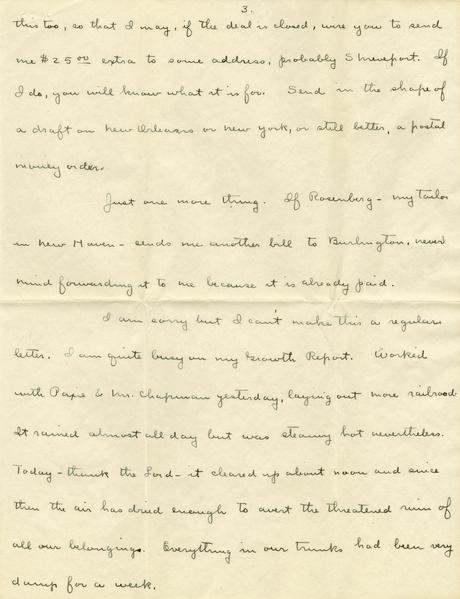 3.
this too, so that I may, if the deal is closed, wire you to send
me $25.00 extra to some address, probably Shreveport. If
I do, you will know what it is for. Send in the shape of
a draft on New Orleans or New York, or still better, a postal
money order.
Just one more thing. If Rosenberg - my tailor
in New Haven - sends me another bill to Burlington, never
mind forwarding it to me because it is already paid.
I am sorry but I can't make this a regular
letter. I am quite busy on my Growth Report. Worked
with Paxie & Mr. Chapman yesterday, laying out more railroad.
It rained almost all day but was steamy hot nevertheless.
Today - thank the Lord - it cleared up about noon and since
then the air has dried enough to avert the threatened ruin of
all our belongings. Everything in our trunks had been very
damp for a week.